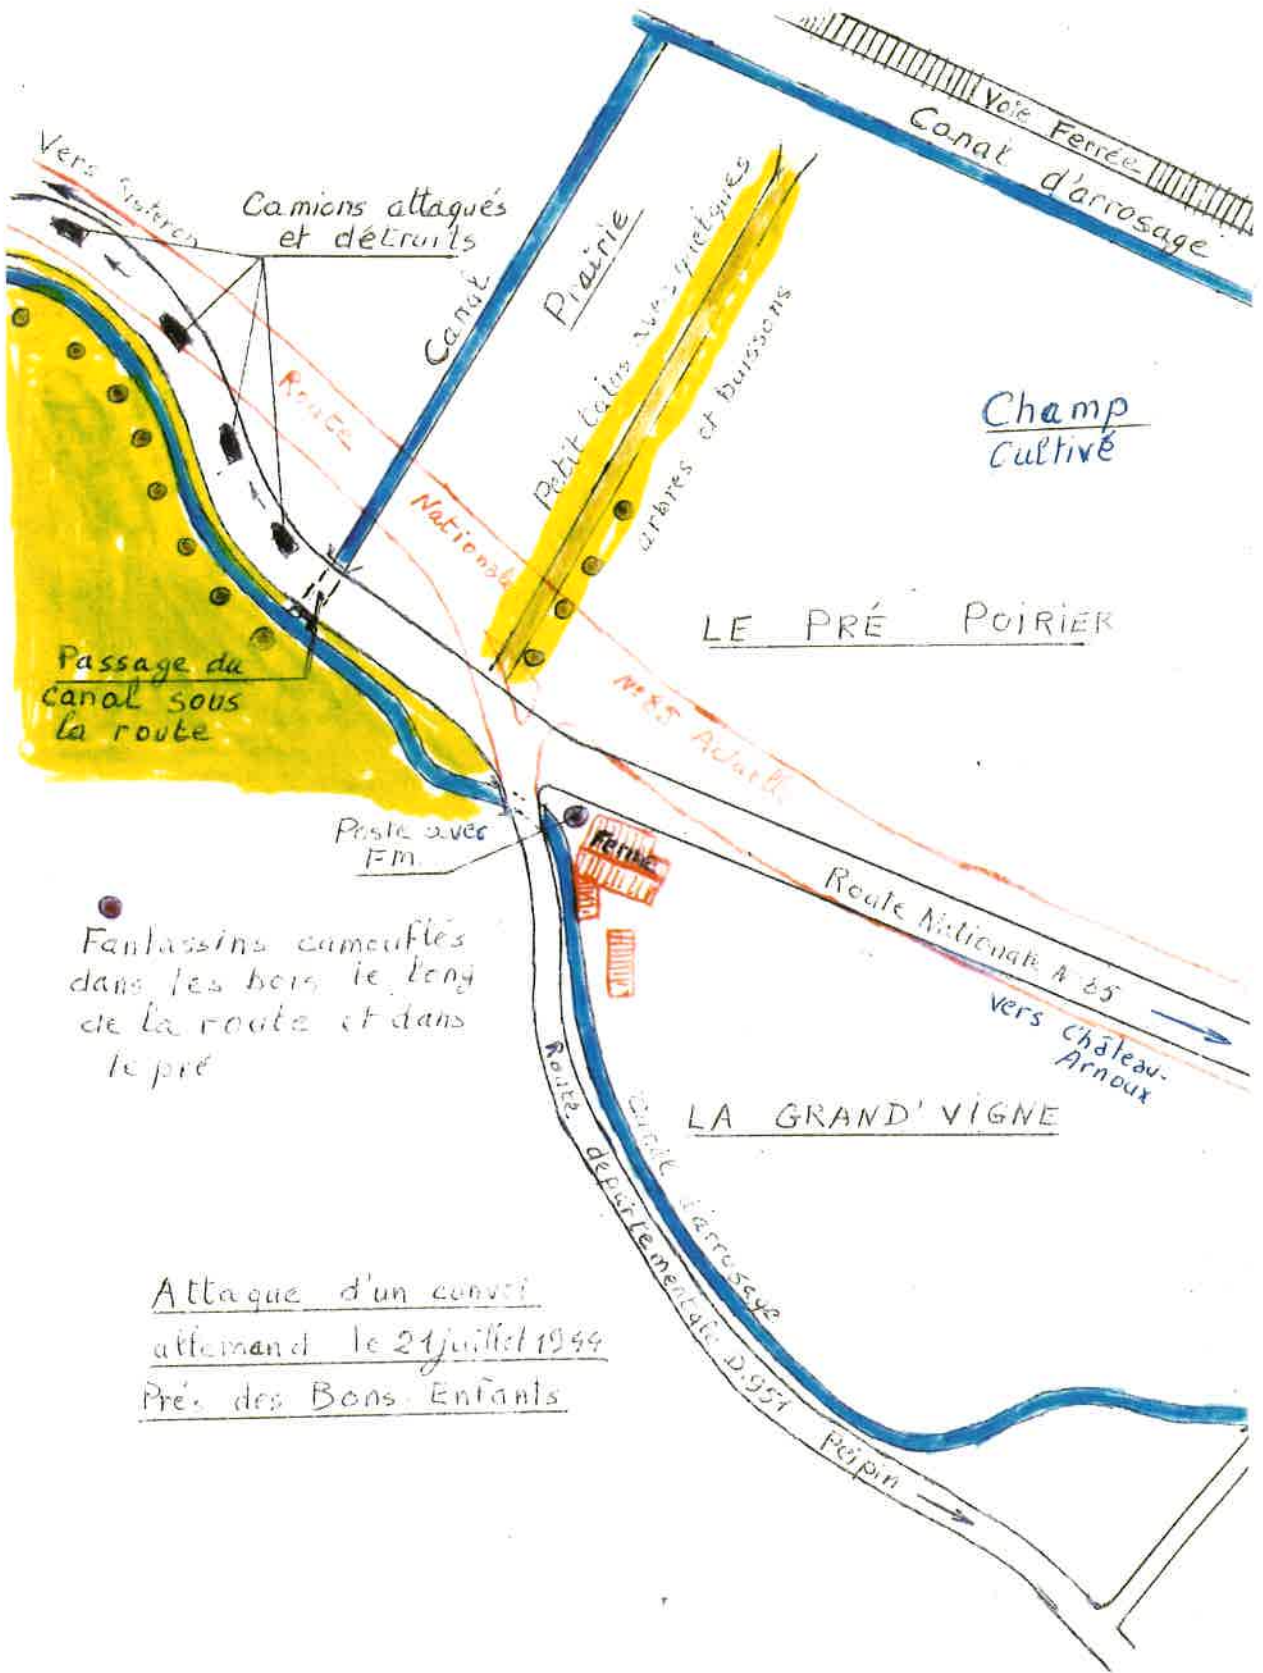 Voie Ferrée
Canal d'arrosage
Vers Sisteron
Camions attaqués
et détruits
Canal
Prairie
Petit talus avec quelques
arbres et buissons
Route Nationale
N° 85 Actuelle
Champ
Cultivé
LE PRÉ POIRIER
Passage du
canal sous
la route
Poste avec
FM.
Ferme
Route Nationale N° 85
vers Château-
Arnoux
Fantassins camouflés
dans les bois le long
de la route et dans
le pré
LA GRAND' VIGNE
Canal d'arrosage
Route départementale D.951
Peipin
Attaque d'un convoi
allemand le 21 juillet 1944
Prés des Bons Enfants